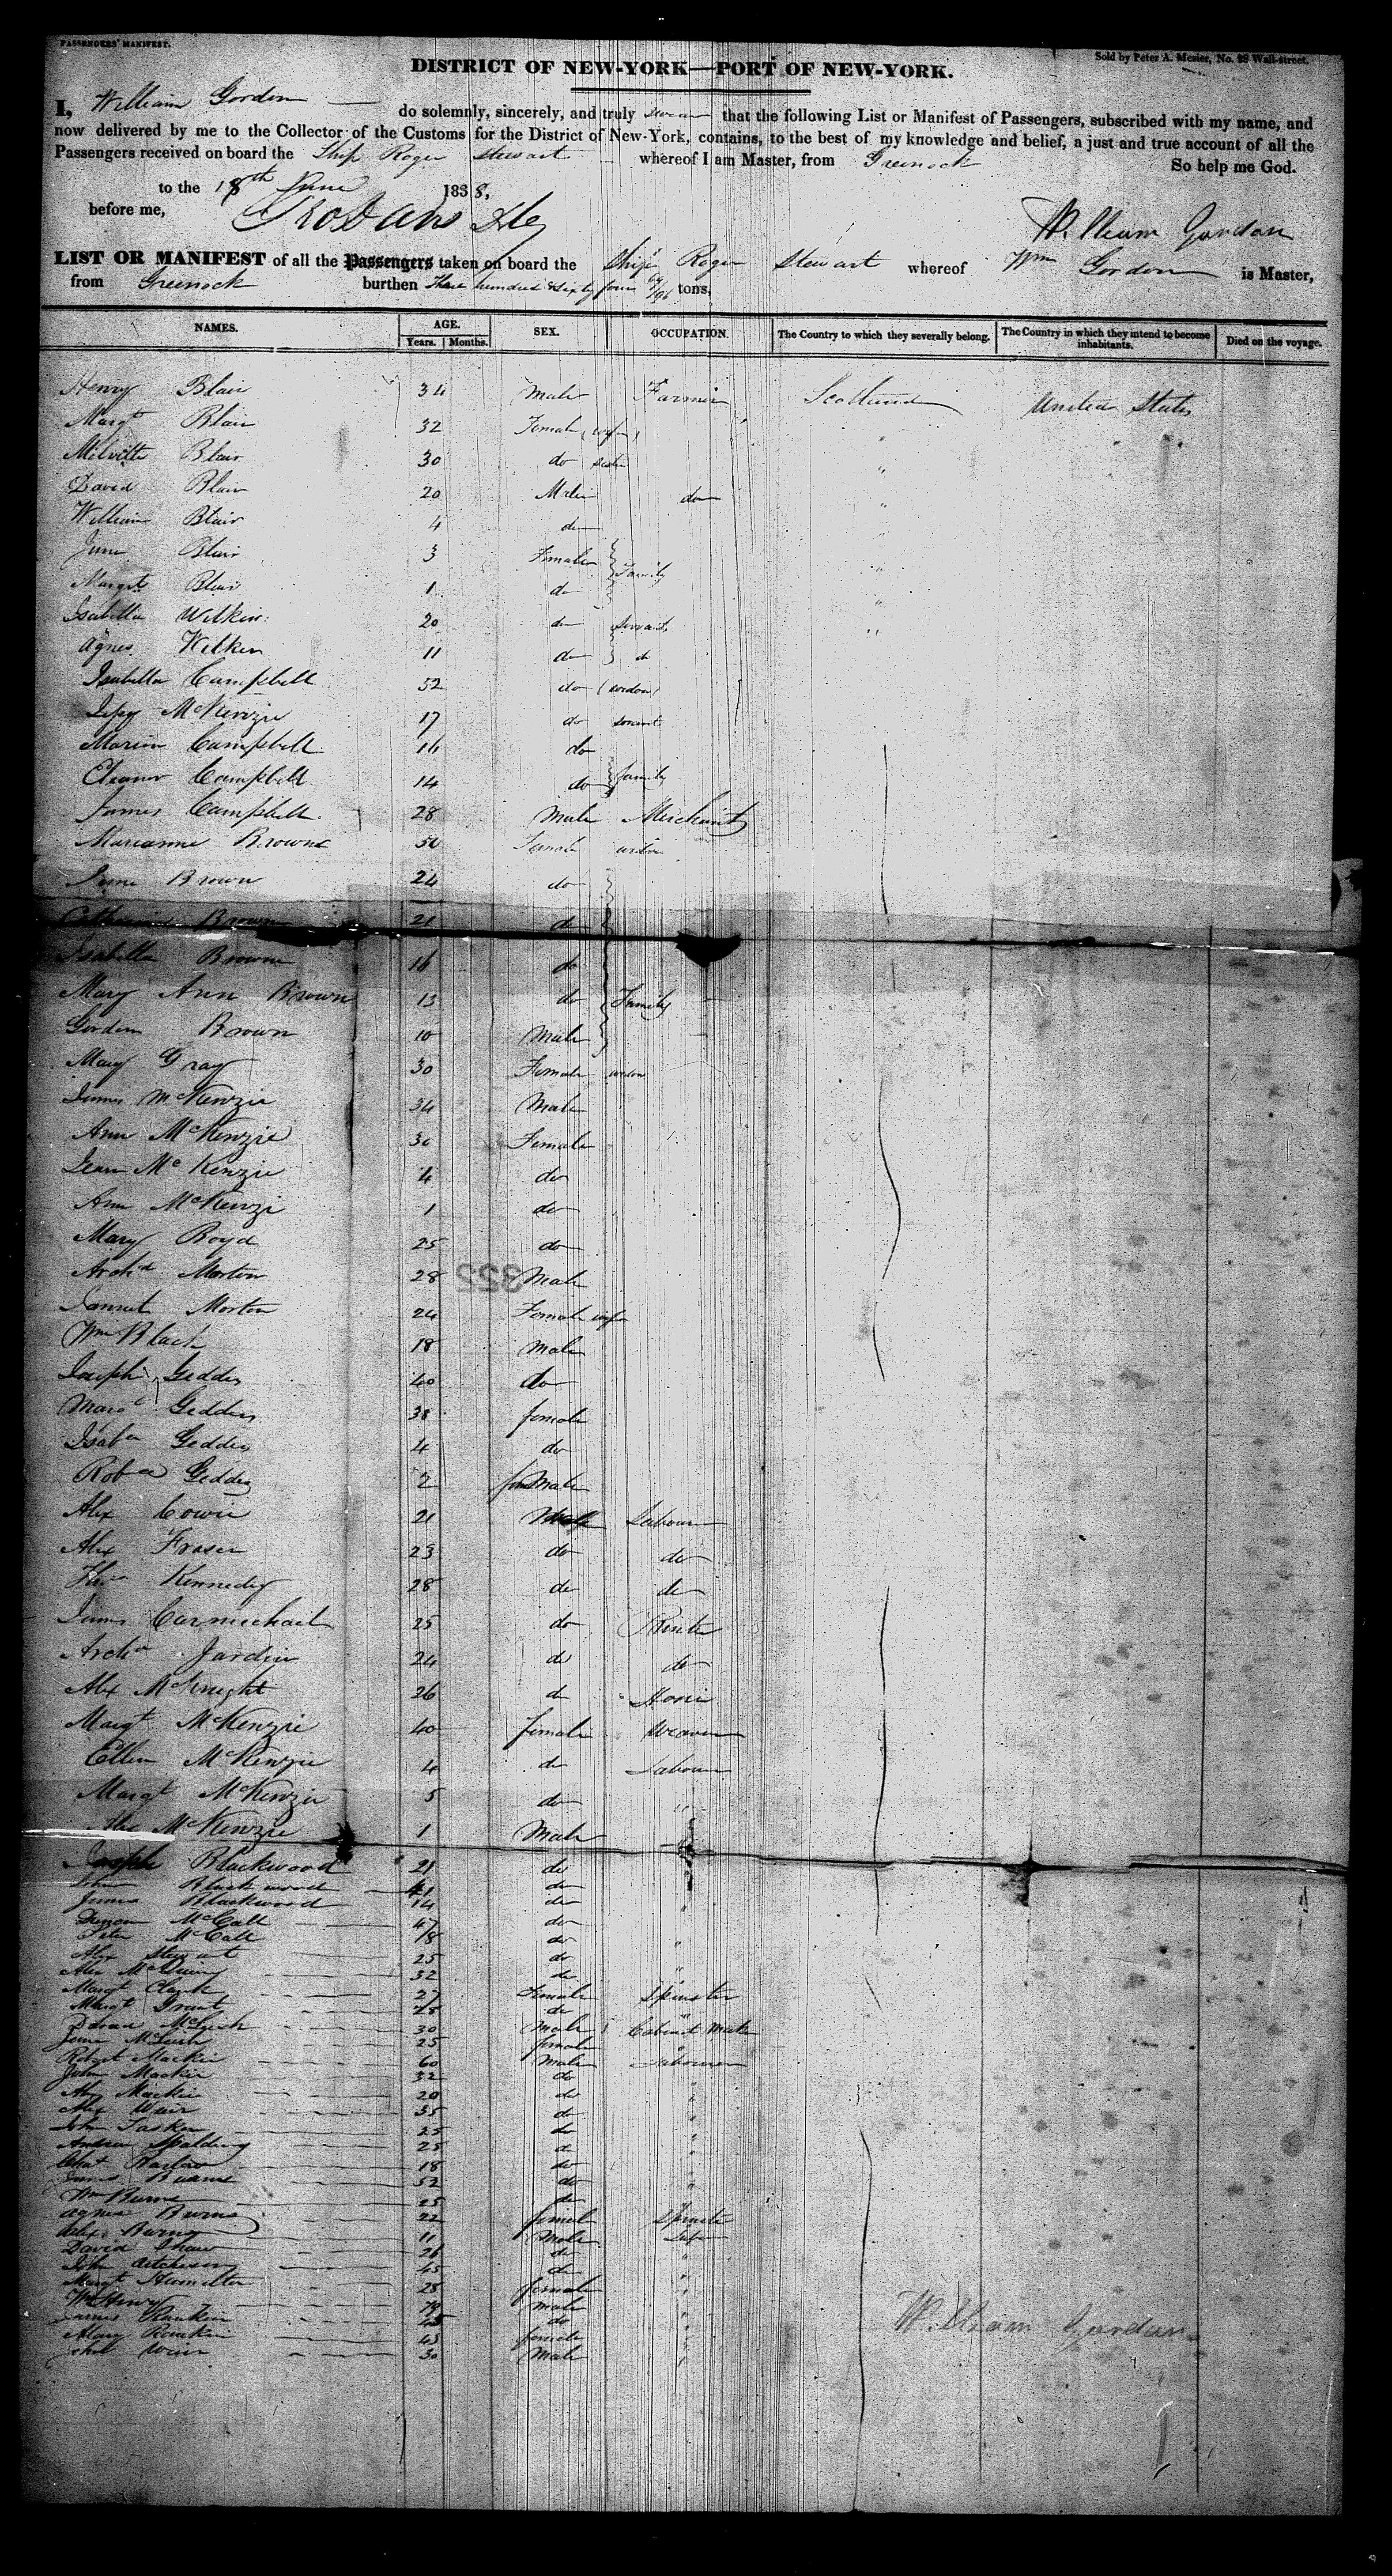 PASSENGERS' MANIFEST.
Sold by Peter A. Mesier, No. 28 Wall-street.
DISTRICT OF NEW-YORK—PORT OF NEW-YORK.
I, William Gordon do solemnly, sincerely, and truly swear that the following List or Manifest of Passengers, subscribed with my name, and
now delivered by me to the Collector of the Customs for the District of New-York, contains, to the best of my knowledge and belief, a just and true account of all the
Passengers received on board the Ship Roger Stewart whereof I am Master, from Greenock
So help me God.
to the 18th June 1838,
before me,
William Gordon
LIST OR MANIFEST of all the Passengers taken on board the Ship Roger Stewart whereof Wm Gordon is Master,
from Greenock burthen Three hundred & sixty four tons,
NAMES. AGE. SEX. OCCUPATION. The Country to which they severally belong. The Country in which they intend to become inhabitants. Died on the voyage.
Years. Months.
Henry Blair 34 Male Farmer Scotland United States
Margt Blair 32 Female (wife) " "
Melville Blair 30 do sister "
David Blair 20 Male do "
William Blair 4 do "
June Blair 3 Female Family "
Margt Blair 1 do "
Isabella Wilkin 20 do servant "
Agnes Wilken 11 do do
Isabella Campbell 52 do (widow)
McKenzie 17 do servant
Marion Campbell 16 do
Eleanor Campbell 14 do family
James Campbell 28 Male Merchant
Marianne Browne 50 Female widow
Jane Brown 24 do
Catherine Brown 21 do
Isabella Brown 16 do
Mary Ann Brown 13 do Family
Gordon Brown 10 Male
Mary Gray 30 Female widow
James McKenzie 34 Male
Ann McKenzie 30 Female
Jean McKenzie 4 do
Ann McKenzi 1 do
Mary Boyd 25 do
Archd Morton 28 Male
322
Jannet Morton 24 Female wife
Wm Black 18 Male
Joseph Geddes 40 do
Margt Geddes 38 female
Isaba Geddes 4 do
Roba Geddes 2 femMale
Alex Cowie 21 Male Labourer
Alex Fraser 23 do do
Kennedy 28 do do
James Carmichail 25 do Printer
Archd Jardin 24 do do
Alex McKnight 26 do
Margt McKenzie 40 female Weaver
Ellen McKenzie 4 do Labourer
Margt McKenzie 5 do "
Alex McKenzie 1 Male "
Joseph Blackwood 21 do
John Blackwood do
James Blackwood 14 do "
Duncan McCall 47 do
Peter McCall 18 do "
Alex Stewart 25 do
Alex 32 do "
Margt Clark 27 Female Spinster
Margt Grant 25 do "
McLeish 30 Male Cabinet Maker
Jane McLeish 25 female "
Robert Mackie 60 Male Labourer
John Mackie 32 do
Alex Mackie 20 do "
Alex Weir 35 do "
John Tasker 25 do "
Andrew Spalding 25 do "
Chas Barlow 18 do "
James Burns 52 do "
Wm Burns 25 do
Agnes Burns 22 female Spinster
Alex Burns 11 Male Labr
David Shaw 26 do "
John Aitchison 45 do
Margt Hamilton 28 female "
Wm Henry 19 male
James Rankin 45 do "
Mary Rankin 45 female "
John Weir 30 Male "
William Gordon